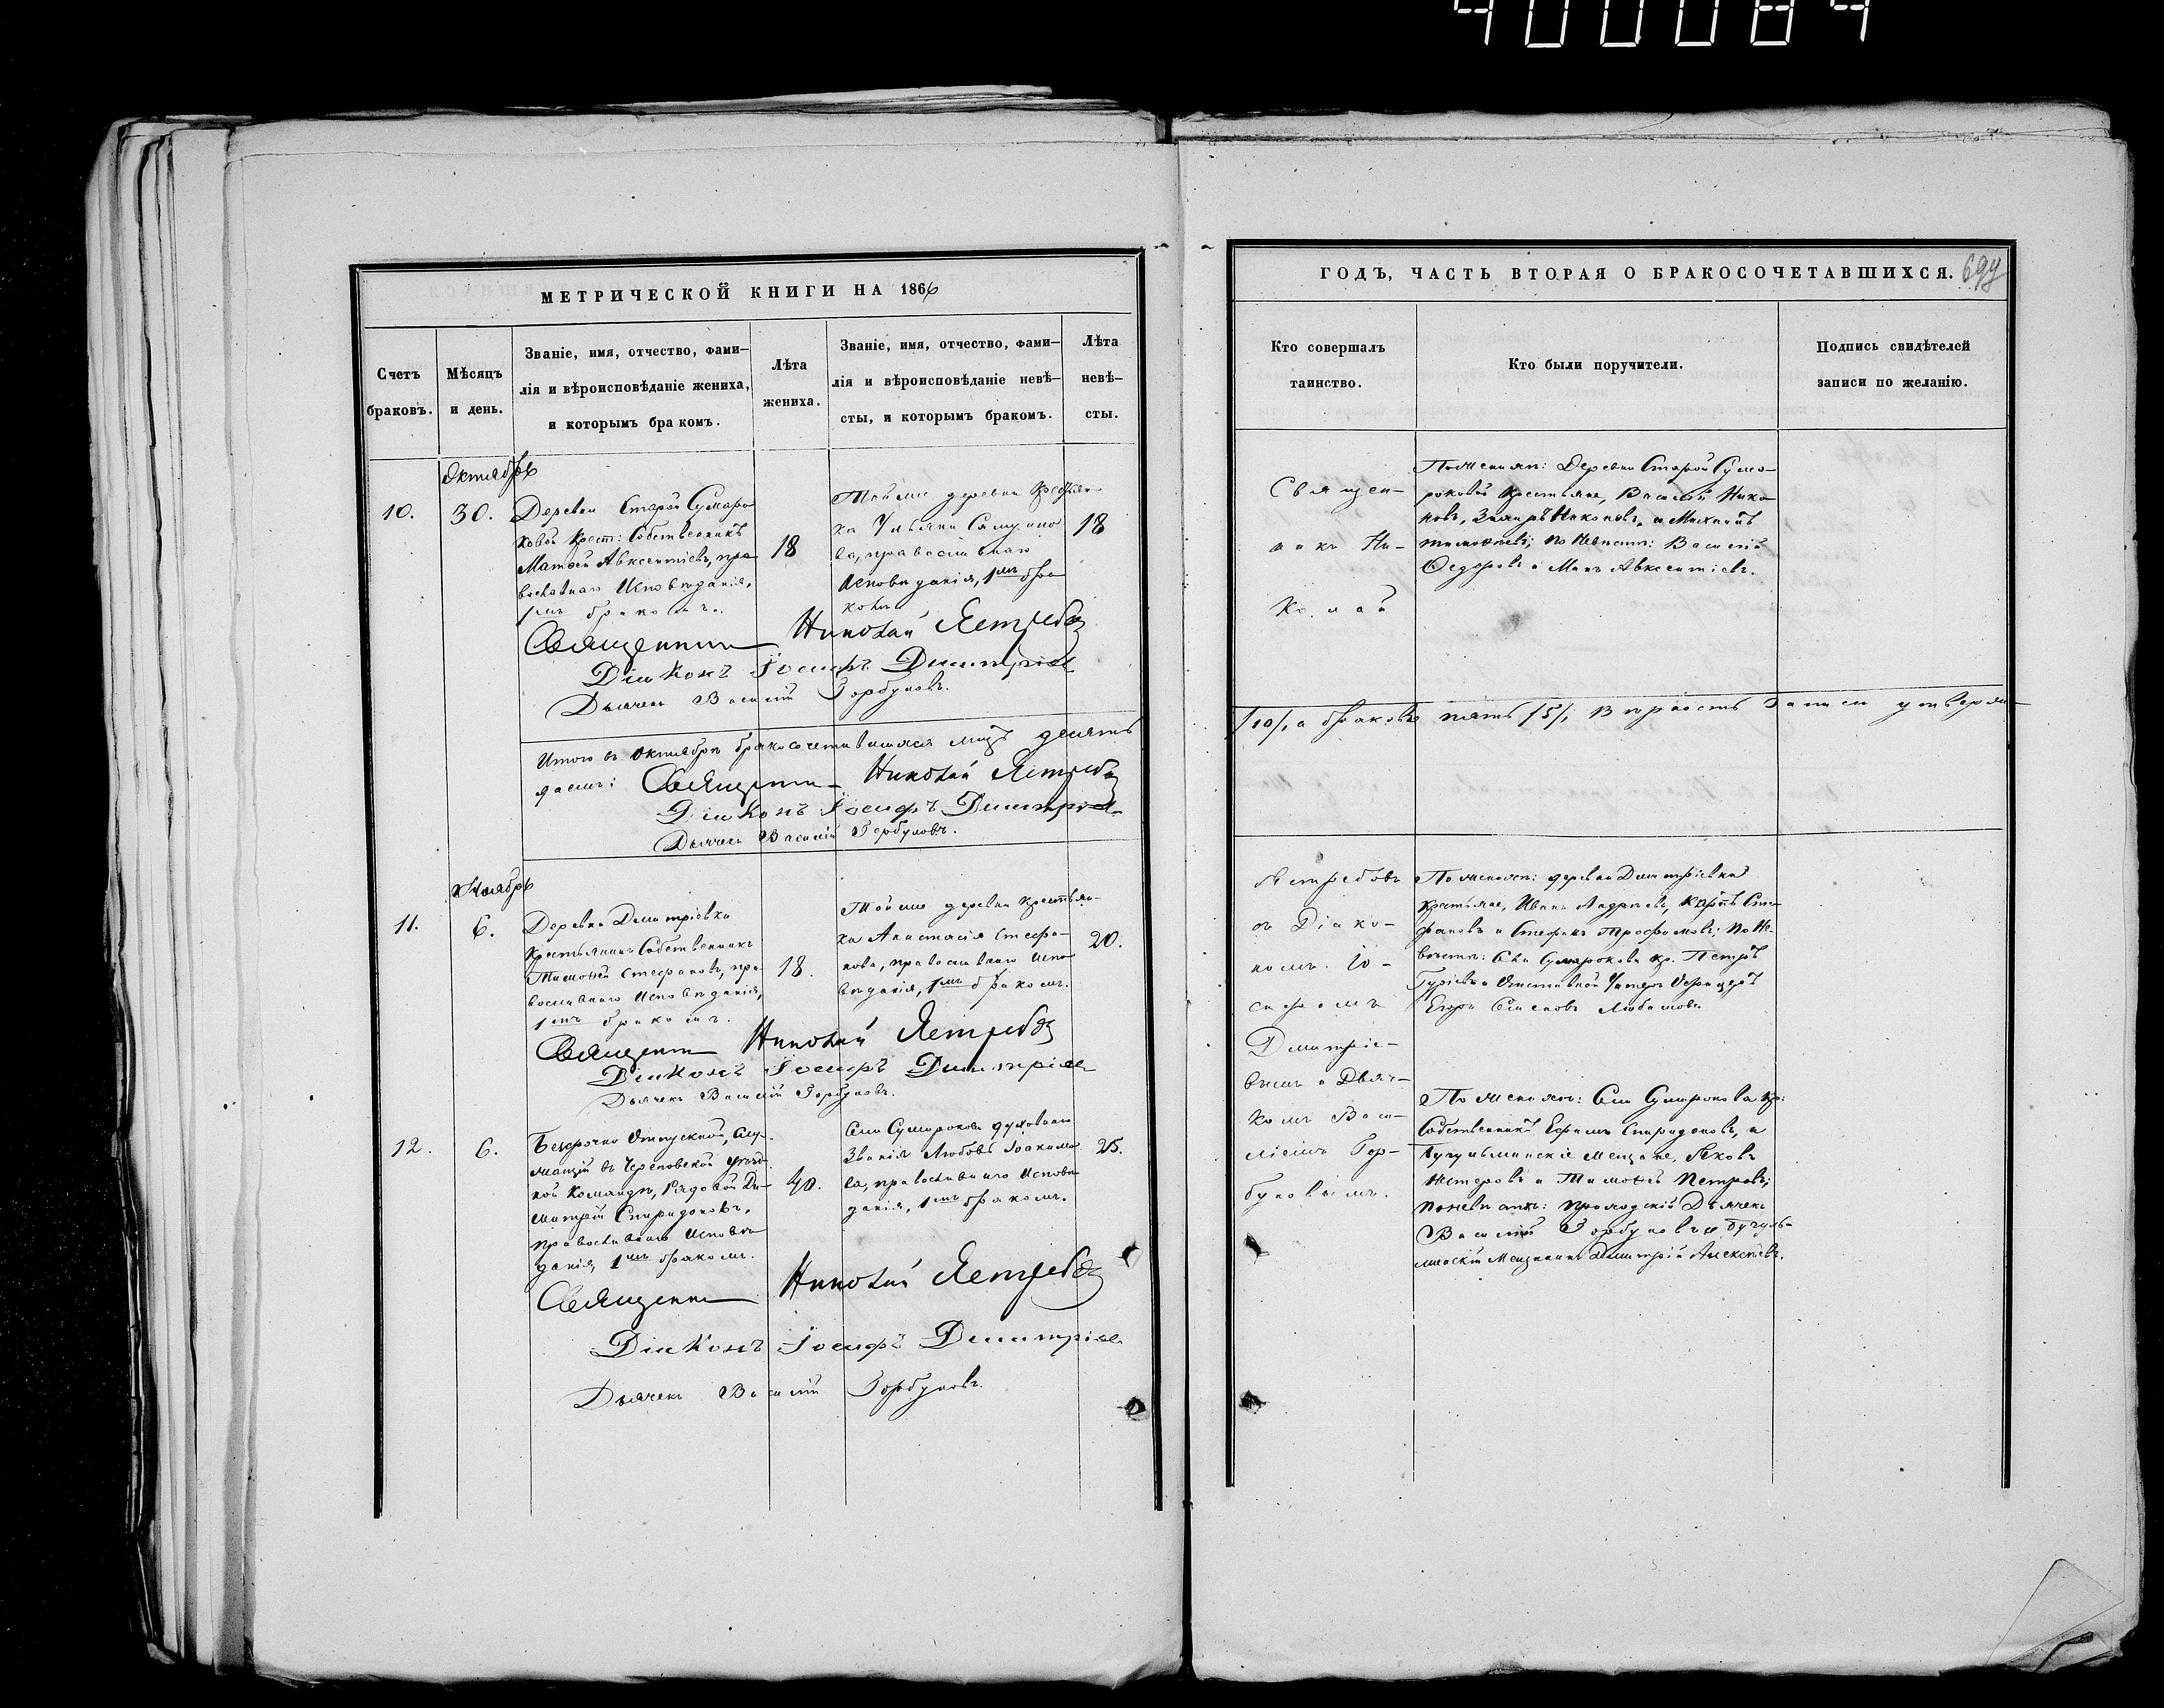 400084
МЕТРИЧЕСКОЙ КНИГИ НА 1866
Счетъ
браковъ.
Мѣсяцъ
и день.
Званіе, имя, отчество, фами-
лія и вѣроисповѣданіе жениха,
и которымъ бракомъ.
Лѣта
жениха.
Званіе, имя, отчество, фами-
лія и вѣроисповѣданіе невѣ-
сты, и которымъ бракомъ.
Лѣта
невѣ-
сты.
Октябрь
10.
30.
Деревни Старой Сумаро
ковой Крест: Собственникъ
Матвей Авксентіевъ, пра
вославнаго Исповѣданія,
1мъ бракомъ.
18
Той же деревни Крестьян-
ка Ульяна
ва, православнаго
Исповѣданія, 1мъ бра
комъ
18
Священникъ Николай Ястребовъ
Діаконъ Іосифъ Димитріевъ
Дьячекъ Василій Горбуновъ.
Итого въ Октябрѣ бракосочетавшихся лицъ десять
даемъ: Священникъ Николай Ястребовъ
Діаконъ Іосифъ Димитріевъ
Дьячекъ Василій Горбуновъ.
Ноябрь
11.
6.
Деревни Димитріевки
Крестьянинъ Собственникъ
Тимофей Стефановъ, пра-
вославнаго Исповѣданія,
1мъ бракомъ.
18.
Той же деревни Крестьян-
ка Анастасія Стефа-
нова, православнаго Испо
вѣданія, 1мъ бракомъ.
20.
Священникъ Николай Ястребовъ
Діаконъ Іосифъ Димитріевъ
Дьячекъ Василій Горбуновъ.
12.
6.
Безсрочно Отпускной, Слу-
жащій въ уѣзд-
ной Командѣ, Рядовой Ди-
митрій Спиридоновъ,
православнаго Исповѣ
данія, 1мъ бракомъ.
40.
Села Сумарокова духовнаго
званія Любовь Іоакимо
ва, православнаго Исповѣ
данія, 1мъ бракомъ.
25.
Священникъ Николай Ястребовъ
Діаконъ Іосифъ Димитріевъ
Дьячекъ Василій Горбуновъ.
ГОДЪ, ЧАСТЬ ВТОРАЯ О БРАКОСОЧЕТАВШИХСЯ.
Кто совершалъ
таинство.
Кто были поручители.
Подпись свидѣтелей
записи по желанію.
Священ-
никъ Ни-
колай
По женихѣ: Деревни Старой Сума-
роковой Крестьяне, Василій Нико
новъ, Никоновъ, и Михаилъ
Тимофеевъ; по Невѣстѣ: Василій
Федоровъ и Авксентіевъ.
/10/, а браковъ пять /5/; Вѣрность записи утвержд-
Ястребовъ
съ Діако-
номъ Іо-
сифомъ
Димитріе-
вымъ и Дьяч-
комъ Васи-
ліемъ Гор-
буновымъ.
По женихѣ: деревни Димитріевки
Крестьяне, Иванъ Андреевъ, Карпъ Сте-
фановъ и Стефанъ Трофимовъ; по Не-
вѣстѣ: Села Сумарокова кр. Петръ
Гурьевъ и Отставной Унтеръ Офицеръ
Егоръ
По женихѣ: Села Сумарокова кр:
Собственникъ Ефимъ Спиридоновъ, и
Бугульминскіе Мещане, Яковъ
и Тимофей Петровъ;
по невѣстѣ: приходскій Дьячекъ
Василій Горбуновъ и Бугуль-
минскій Мещанинъ Димитрій Алексѣевъ.